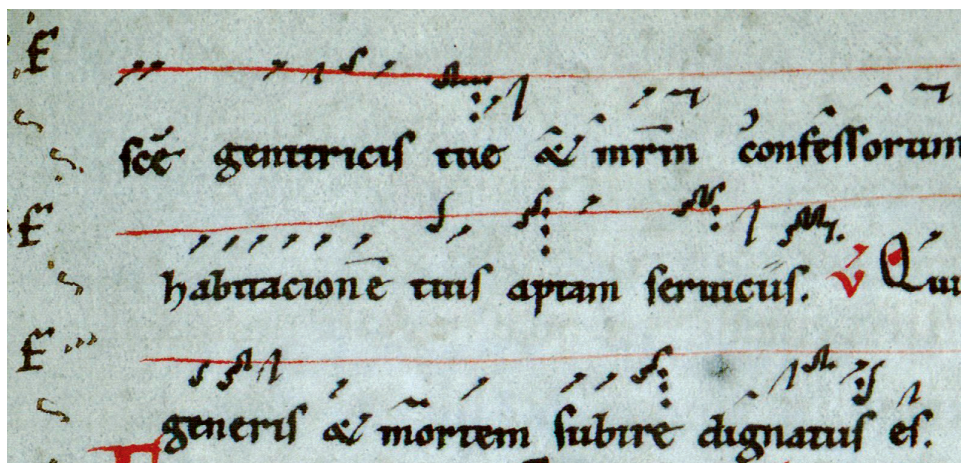 sce genitricis tue & mrm confessorum
habitacione tuis aptam seruiciis. V Qui
generis & mortem subire dignatus es.